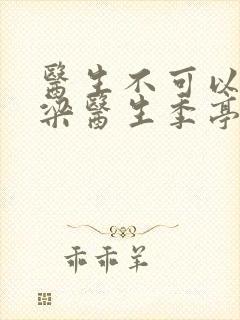 醫生不可以
梁醫生季亭
乖乖羊